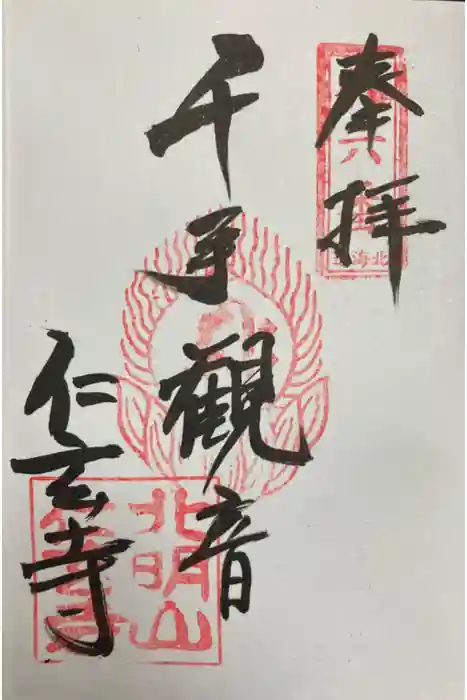 奉拝
千手観音
仁玄寺
北明山